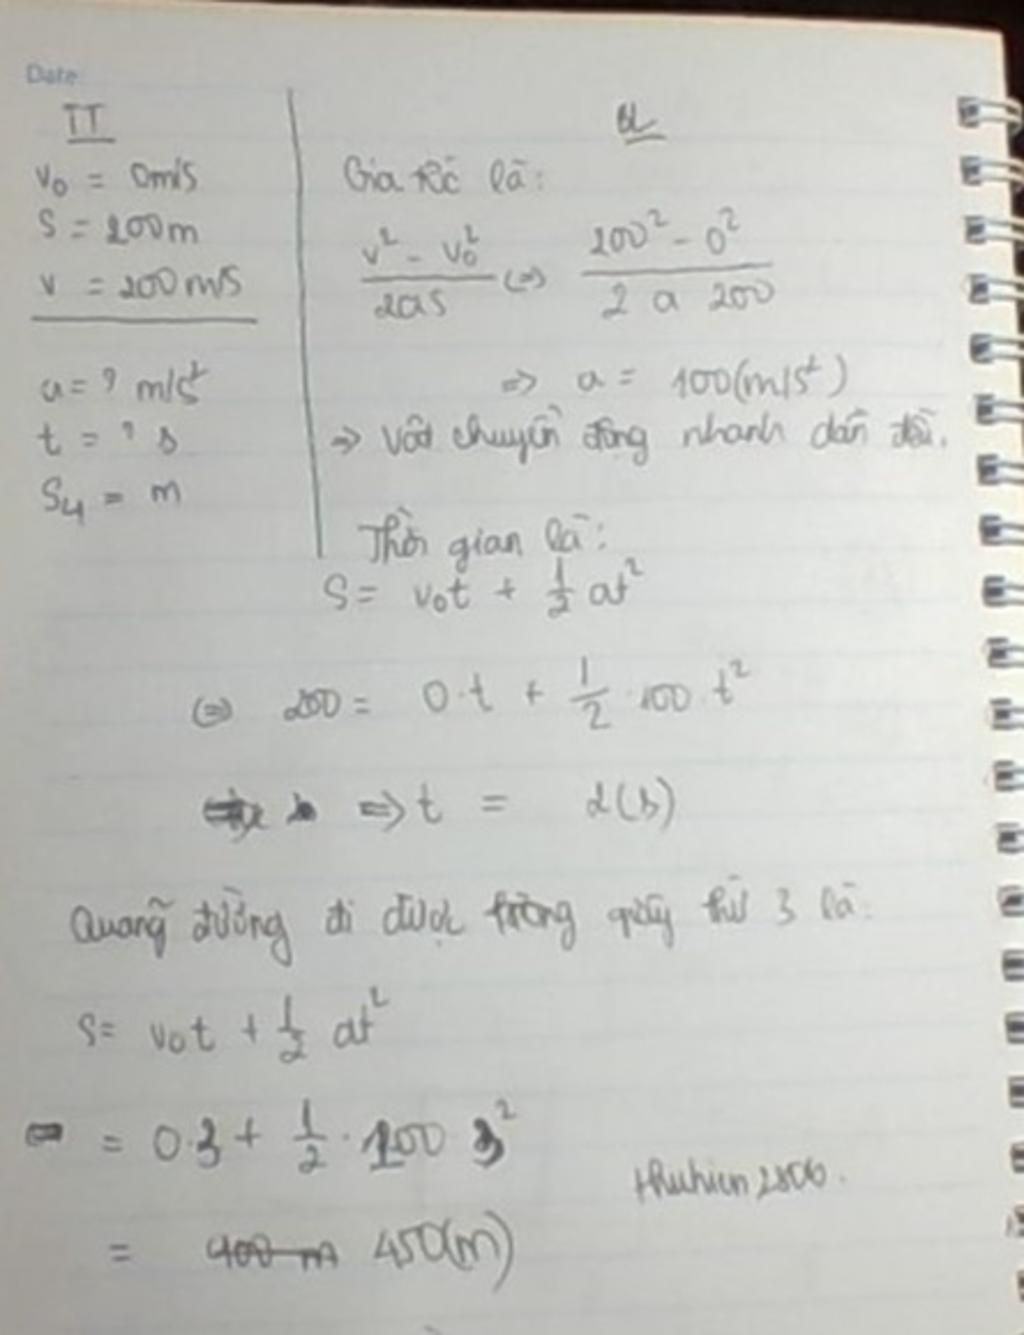 Date
TT
v₀ = 0m/s
S = 200m
v = 200m/s
a = ? m/s²
t = ? s
S₄ = m
GL
Gia tốc là:
(v² - v₀²)/(2as) <=> (200² - 0²)/(2 a 200)
=> a = 100(m/s²)
=> vật chuyển động nhanh dần đều.
Thời gian là:
S = v₀t + 1/2 at²
<=> 200 = 0.t + 1/2 . 100 . t²
=> t = 2(s)
Quãng đường đi được trong giây thứ 3 là:
S = v₀t + 1/2 at²
= 0.3 + 1/2 . 100 3²
= 400 m 450(m)
thuhien2806.